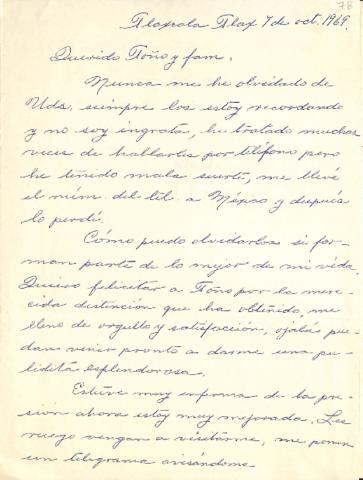 78
Tlaxcala Tlax 7 de oct. 1969.
Querido Toño y fam.
Nunca me he olvidado de
Uds. siempre los estoy recordando
y no soy ingrata, he tratado muchas
veces de hablarles por teléfono pero
he tenido mala suerte, me llevé
el núm. del tel. a México y después
lo perdí.
Cómo puedo olvidarlos si for-
man parte de lo mejor de mi vida.
Quiero felicitar a Toño por la mere-
cida distinción que ha obtenido, me
lleno de orgullo y satisfacción, ojalá pue-
dan venir pronto a darme una
esplendorosa.
Estuve muy enferma de la pre-
sión ahora estoy muy mejorada. Les
ruego vengan a visitarme, me ponen
un telegrama avisándome